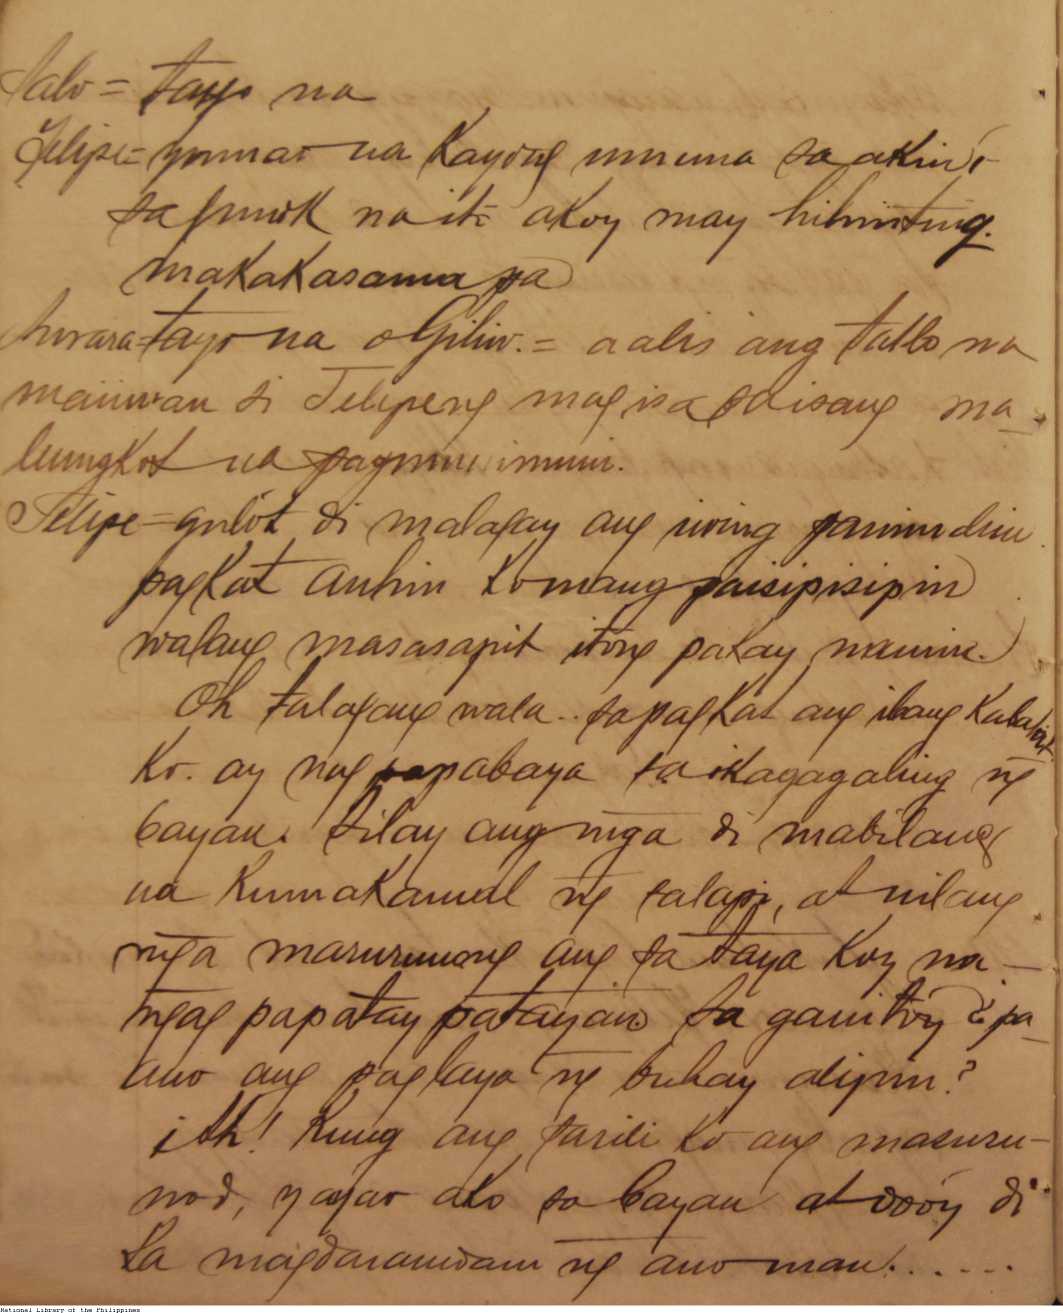 Salo = tayo na
Felipe = yumao na kayong umuna sa akin't
sa pusok na ito akoy may hihinting.
makakasama pa
tayo na o Giliw. = aalis ang tatlo na
maiiwan si Felipeng magisa sa isang ma-
lungkot na pagmumunimuni.
Felipe = gulót di malagay ang iwing panimdim
pagkat anhin ko mang paisipisipin
walang masasapit itong pakay namin.
Oh talagang wala.. sapagkat ang ibang kabalat
ko. ay nag papabaya sa ikagagaling ng̃
bayan. Silay ang mg̃a di mabilang
na kumakamal ng̃ salapi, at nilang
mg̃a marurunong ang sa taya koy na-
ng̃ag papatay patayan sa ganitoy ¿pa-
ano ang paglaya ng̃ buhay alipin?
¡Ah! kung ang sarili ko ang masusu-
nod, yayao ako sa bayan at doóy di
sa magdaramdam ng̃ ano man.......
National Library of the Philippines